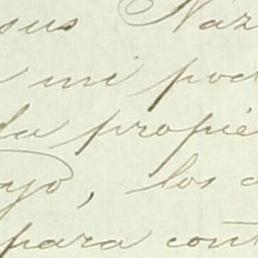 sus Naz
mi pod
la propie
ayo, los
para cont